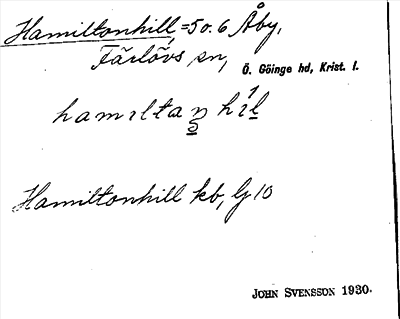 Hamiltonhill, =5 o. 6 Åby,
Färlövs sn, Ö. Göinge hd, Krist. l.
hamıltan hıl
Hamiltonhill kb, lg 10
JOHN SVENSSON 1930.